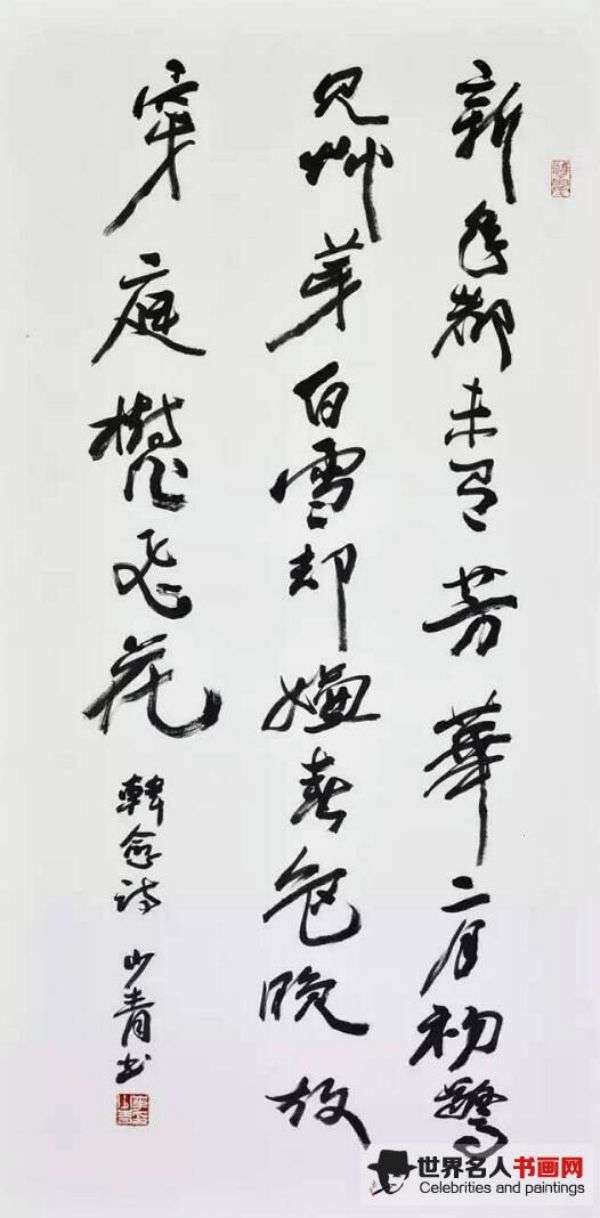 新年都未有芳華二月初驚
見艸芽白雪却嫌春色晚故
穿庭樹作飛花
韓愈诗 少青书
世界名人书画网
Celebrities and paintings